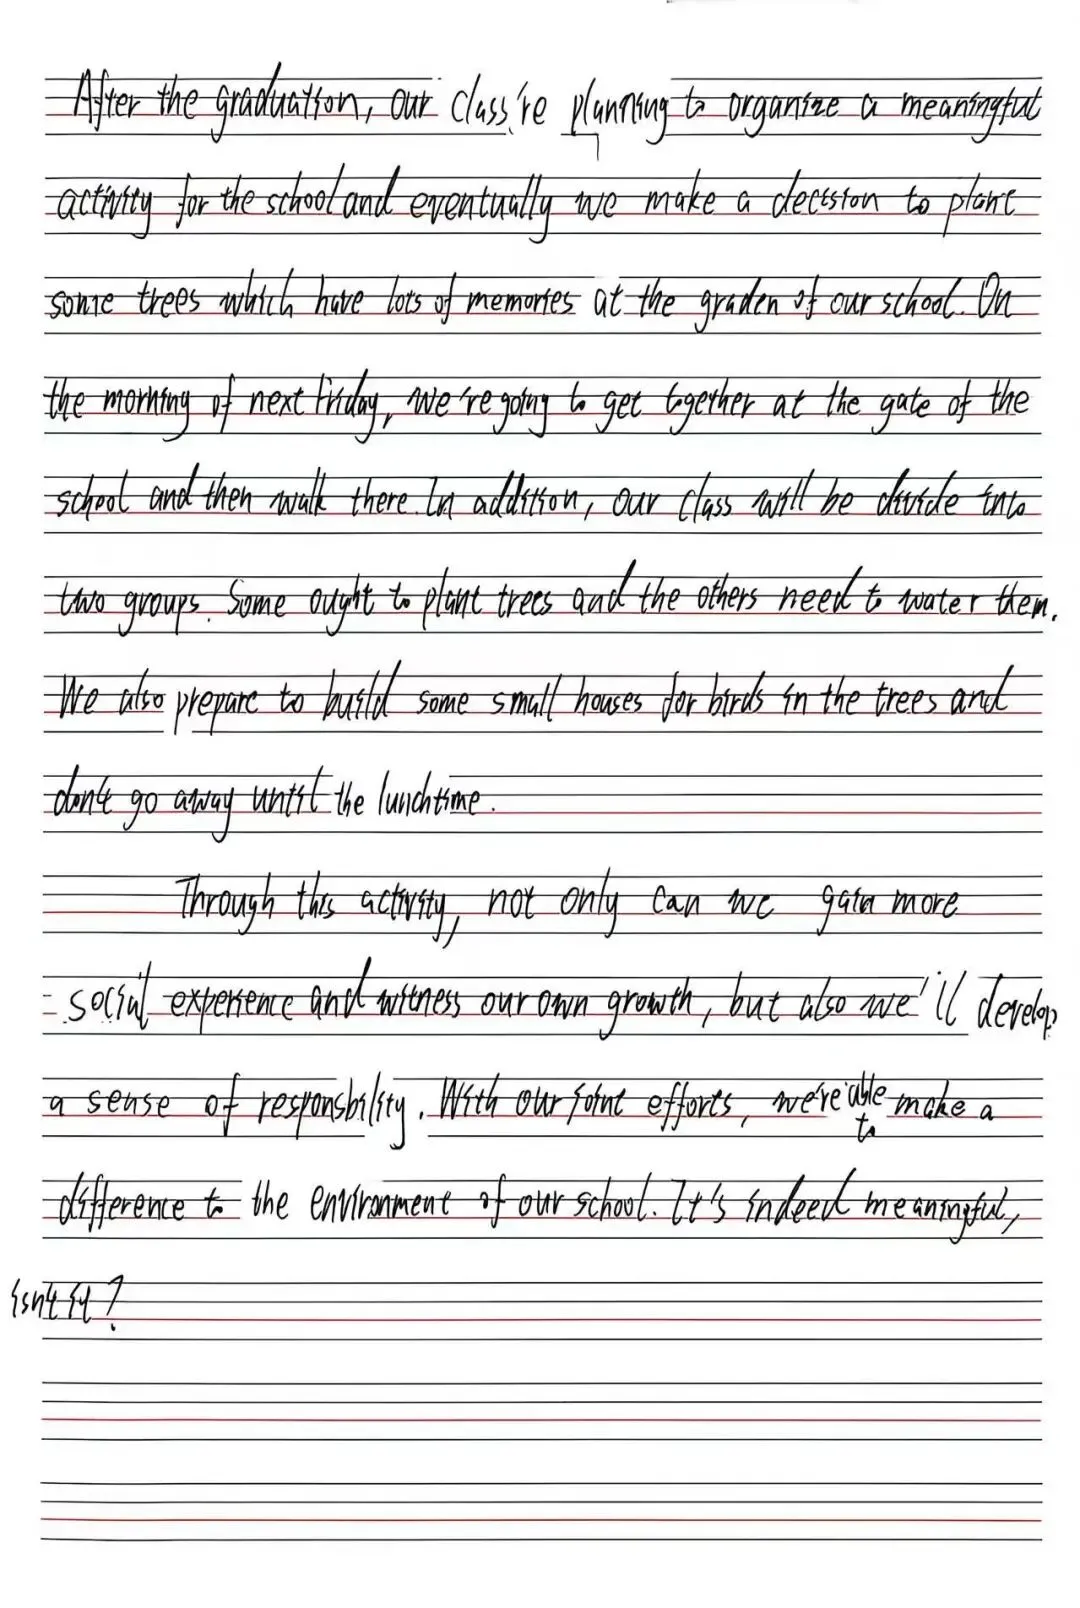 After the graduation, our class're planning to organize a meaningful
activity for the school and eventually we make a decision to plant
some trees which have lots of memories at the graden of our school. On
the morning of next Friday, we're going to get together at the gate of the
school and then walk there. In addition, our class will be divide into
two groups. Some ought to plant trees and the others need to water them.
We also prepare to build some small houses for birds in the trees and
don't go away until the lunchtime.
Through this activity, not only can we gain more
social experience and witness our own growth, but also we'll develop
a sense of responsbility. With our joint efforts, we're able to make a
difference to the environment of our school. It's indeed meaningful,
isn't it?